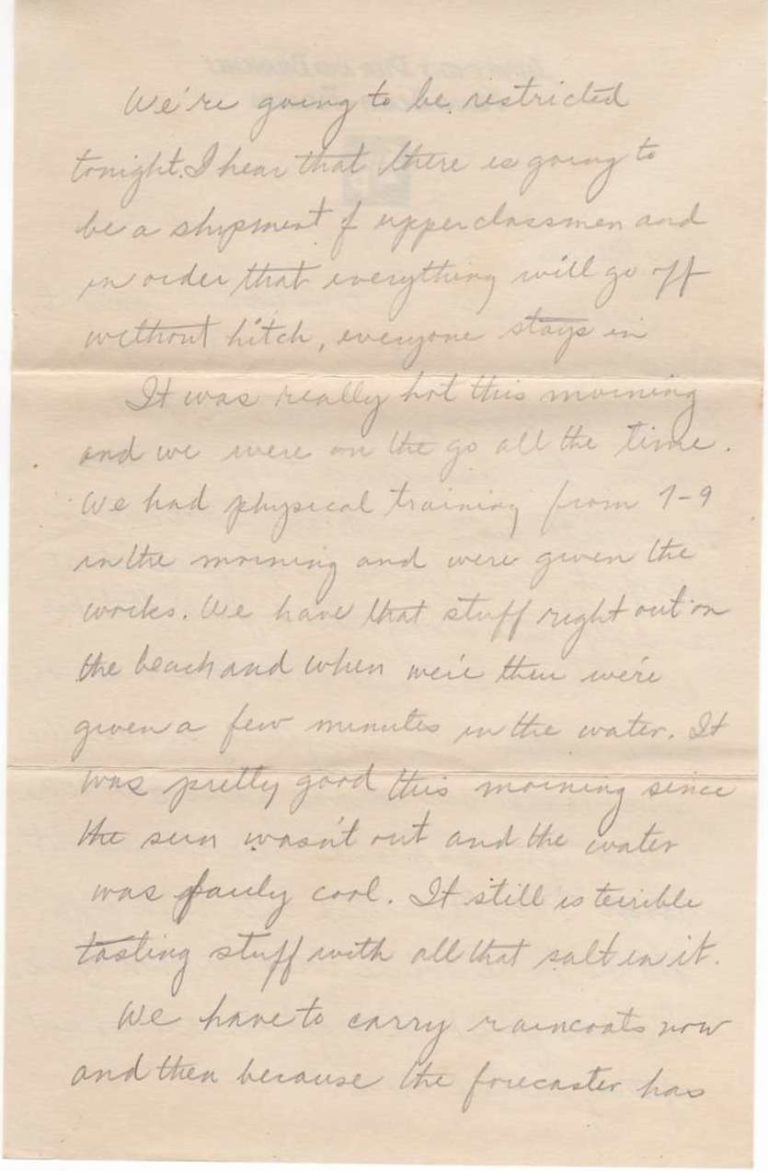 We're going to be restricted
tonight. I hear that there is going to
be a shipment of upperclassmen and
in order that everything will go off
without hitch, everyone stays in
It was really hot this morning
and we were on the go all the time.
We had physical training from 7-9
in the morning and were given the
works. We have that stuff right out on
the beach and when we're there we're
given a few minutes in the water. It
was pretty good this morning since
the sun wasn't out and the water
was fairly cool. It still is terrible
tasting stuff with all that salt in it.
We have to carry raincoats now
and then because the forecaster has